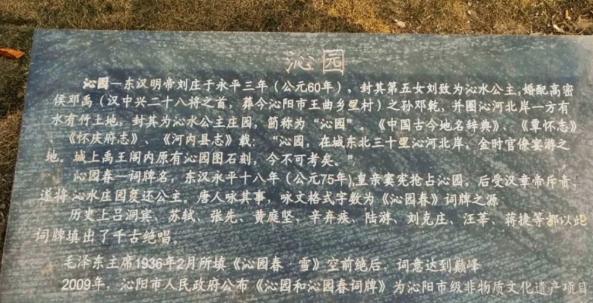 沁园
沁园—东汉明帝刘庄于永平三年（公元60年），封其第五女刘致为沁水公主，婚配高密
侯邓禹（汉中兴二十八将之首，葬今沁阳市王曲乡里村）之孙邓乾，并圈沁河北岸一方有
水有竹土地，封其为沁水公主庄园，简称为“沁园”。《中国古今地名辞典》、《覃怀志》
《怀庆府志》、《河内县志》载：“沁园，在城东北三十里沁河北岸，金时官僚宴游之
地，城上禹王阁内原有沁园图石刻，今不可考矣。”
沁园春—词牌名，东汉永平十八年（公元75年），皇亲窦宪抢占沁园，后受汉章帝斥责，
遂将沁水庄园复还公主，唐人咏其事，咏文格式字数为《沁园春》词牌之源
历史上吕洞宾、苏轼、张先、黄庭坚、辛弃疾、陆游、刘克庄、汪莘、蒋捷等都以此
词牌填出了千古绝唱。
毛泽东主席1936年2月所填《沁园春 雪》空前绝后，词意达到巅峰
2009年，沁阳市人民政府公布《沁园和沁园春词牌》为沁阳市级非物质文化遗产项目